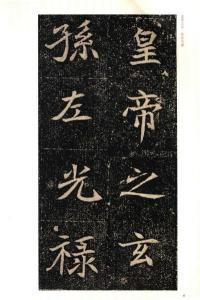 皇帝之玄
孫左光祿